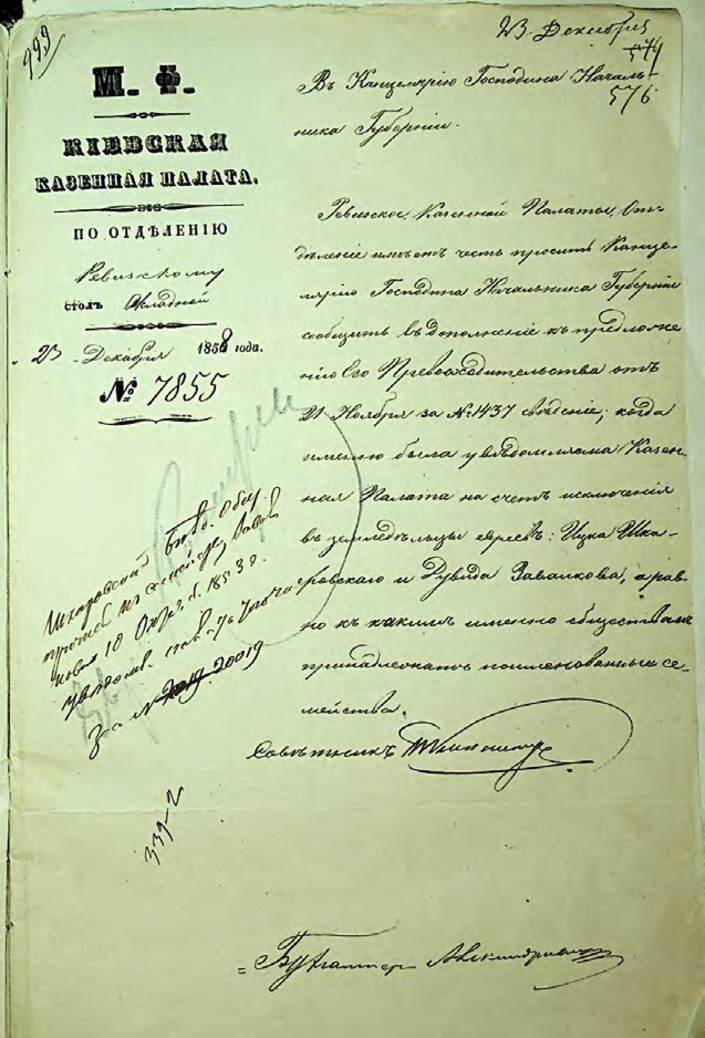 999
23 Декабря
574
576
М. Ф.
КІЕВСКАЯ
КАЗЕННАЯ ПАЛАТА.
ПО ОТДѢЛЕНІЮ
Ревизскому
СТОЛЪ Окладной
23 Декабря 1858 года.
№ 7855
Въ Канцелярію Господина Началь-
ника Губерніи.
Ревизское Казенной Палаты От-
дѣленіе имѣетъ честь просить Канце-
лярію Господина Начальника Губерніи
сообщить въ дополненіе къ предложе
нію Его Превосходительства отъ
21 Ноября за № 1437 свѣденіе, когда
именно была увѣдомляема Казен-
ная Палата на счетъ исключенія
въ земледѣльцы евреевъ: Ицка Шка-
ровскаго и Дувида Завалкова, а рав-
но къ какимъ именно обществамъ
принадлежатъ поименованные се-
мейства.
Совѣтникъ
Шкаровскій
18
за № 20019
339-2
Бухгалтеръ